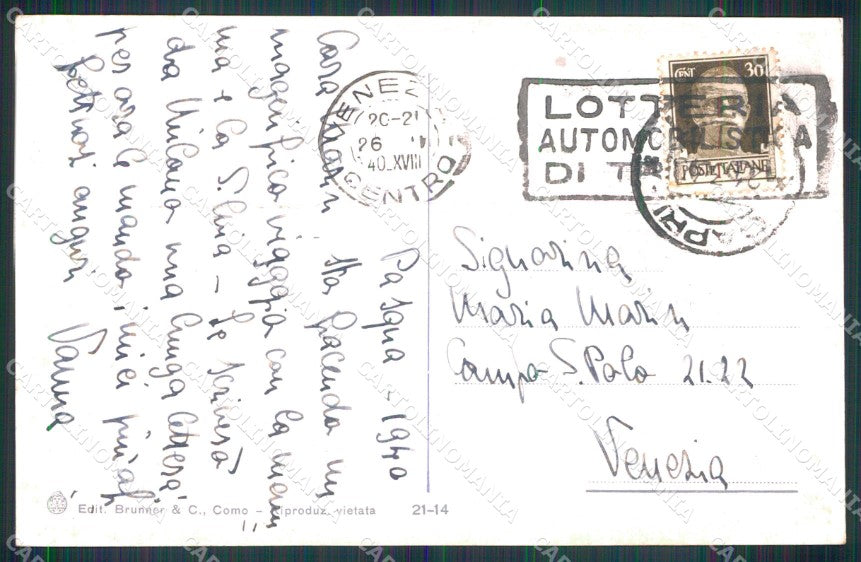 Pasqua - 1940
Cara Marin sta facendo un
magnifico viaggio con la mam
ma e la S. Livia - Le scriverò
da Milano una lunga lettera,
per ora le mando i miei più af
fettuosi auguri
Vanna
VENEZIA
20-21
26
40.XVIII
CENTRO
LOTTERIA
AUTOMOBILISTICA
DI T
CENT 30
POSTE ITALIANE
CAPRI
Signorina
Maria Marin
Campo S. Polo 21.22
Venezia
Edit. Brunner & C., Como - Riproduz. vietata 21-14
CARTOLINOMANIA